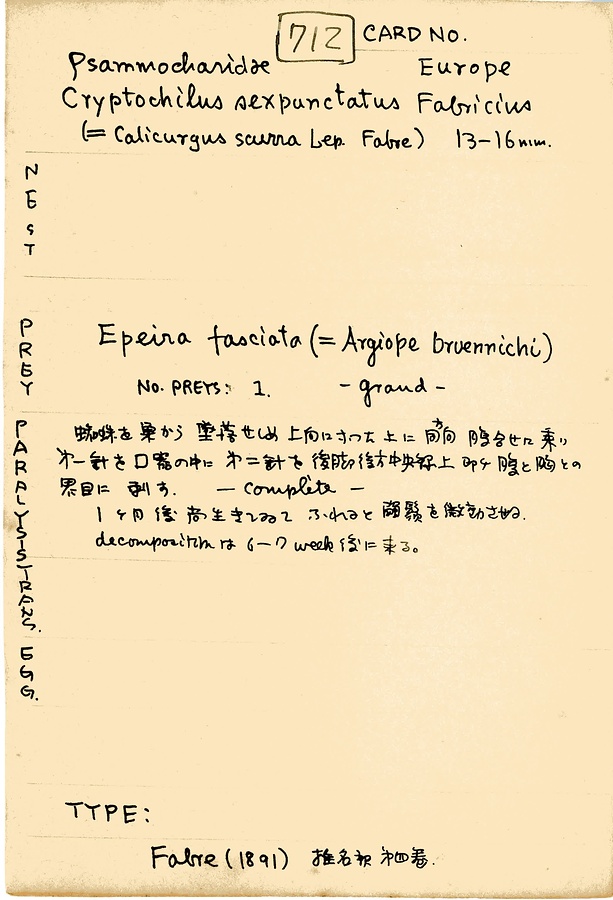 712 CARD NO.
Psammocharidae Europe
Cryptochilus sexpunctatus Fabricius
(= Calicurgus scurra Lep. Fabre) 13-16mm.
NEST
PREY
Epeira fasciata (= Argiope bruennichi)
No. PREYS: 1. - grand -
PARALYSIS.TRANS. EGG.
蜘蛛を巣から墜落せしめ上向になった上に同方向 腹合せに乗り
第一針を口器の中に 第二針を後脚後方中央線上 即ケ腹と胸との
界目に 刺す. - complète -
1ヶ月後尚生きてゐて ふれると 觸鬚を微動させる.
decomposition は 6-7 week 後に来る。
TYPE:
Fabre (1891) 椎名訳 第四巻.